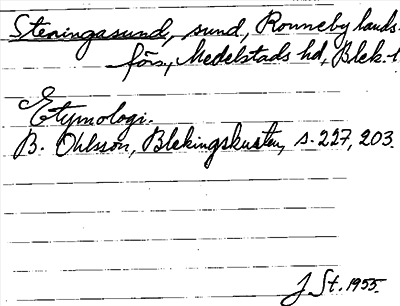 Steningasund, sund, Ronneby lands-
förs, Medelstads hd, Blek. l
Etymologi.
B. Ohlsson, Blekingskusten, s. 227, 203.
J St. 1955.